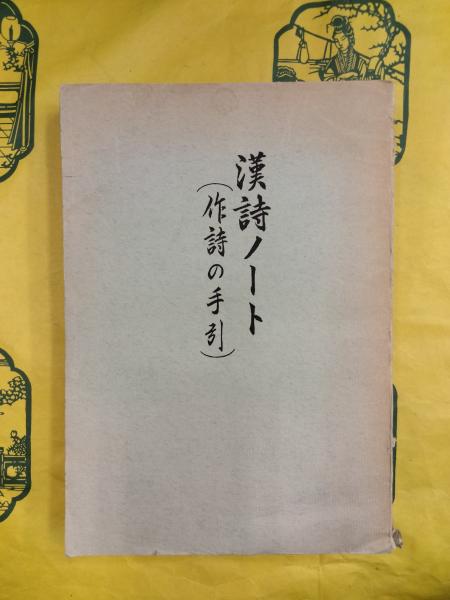 漢詩ノート
(作詩の手引)